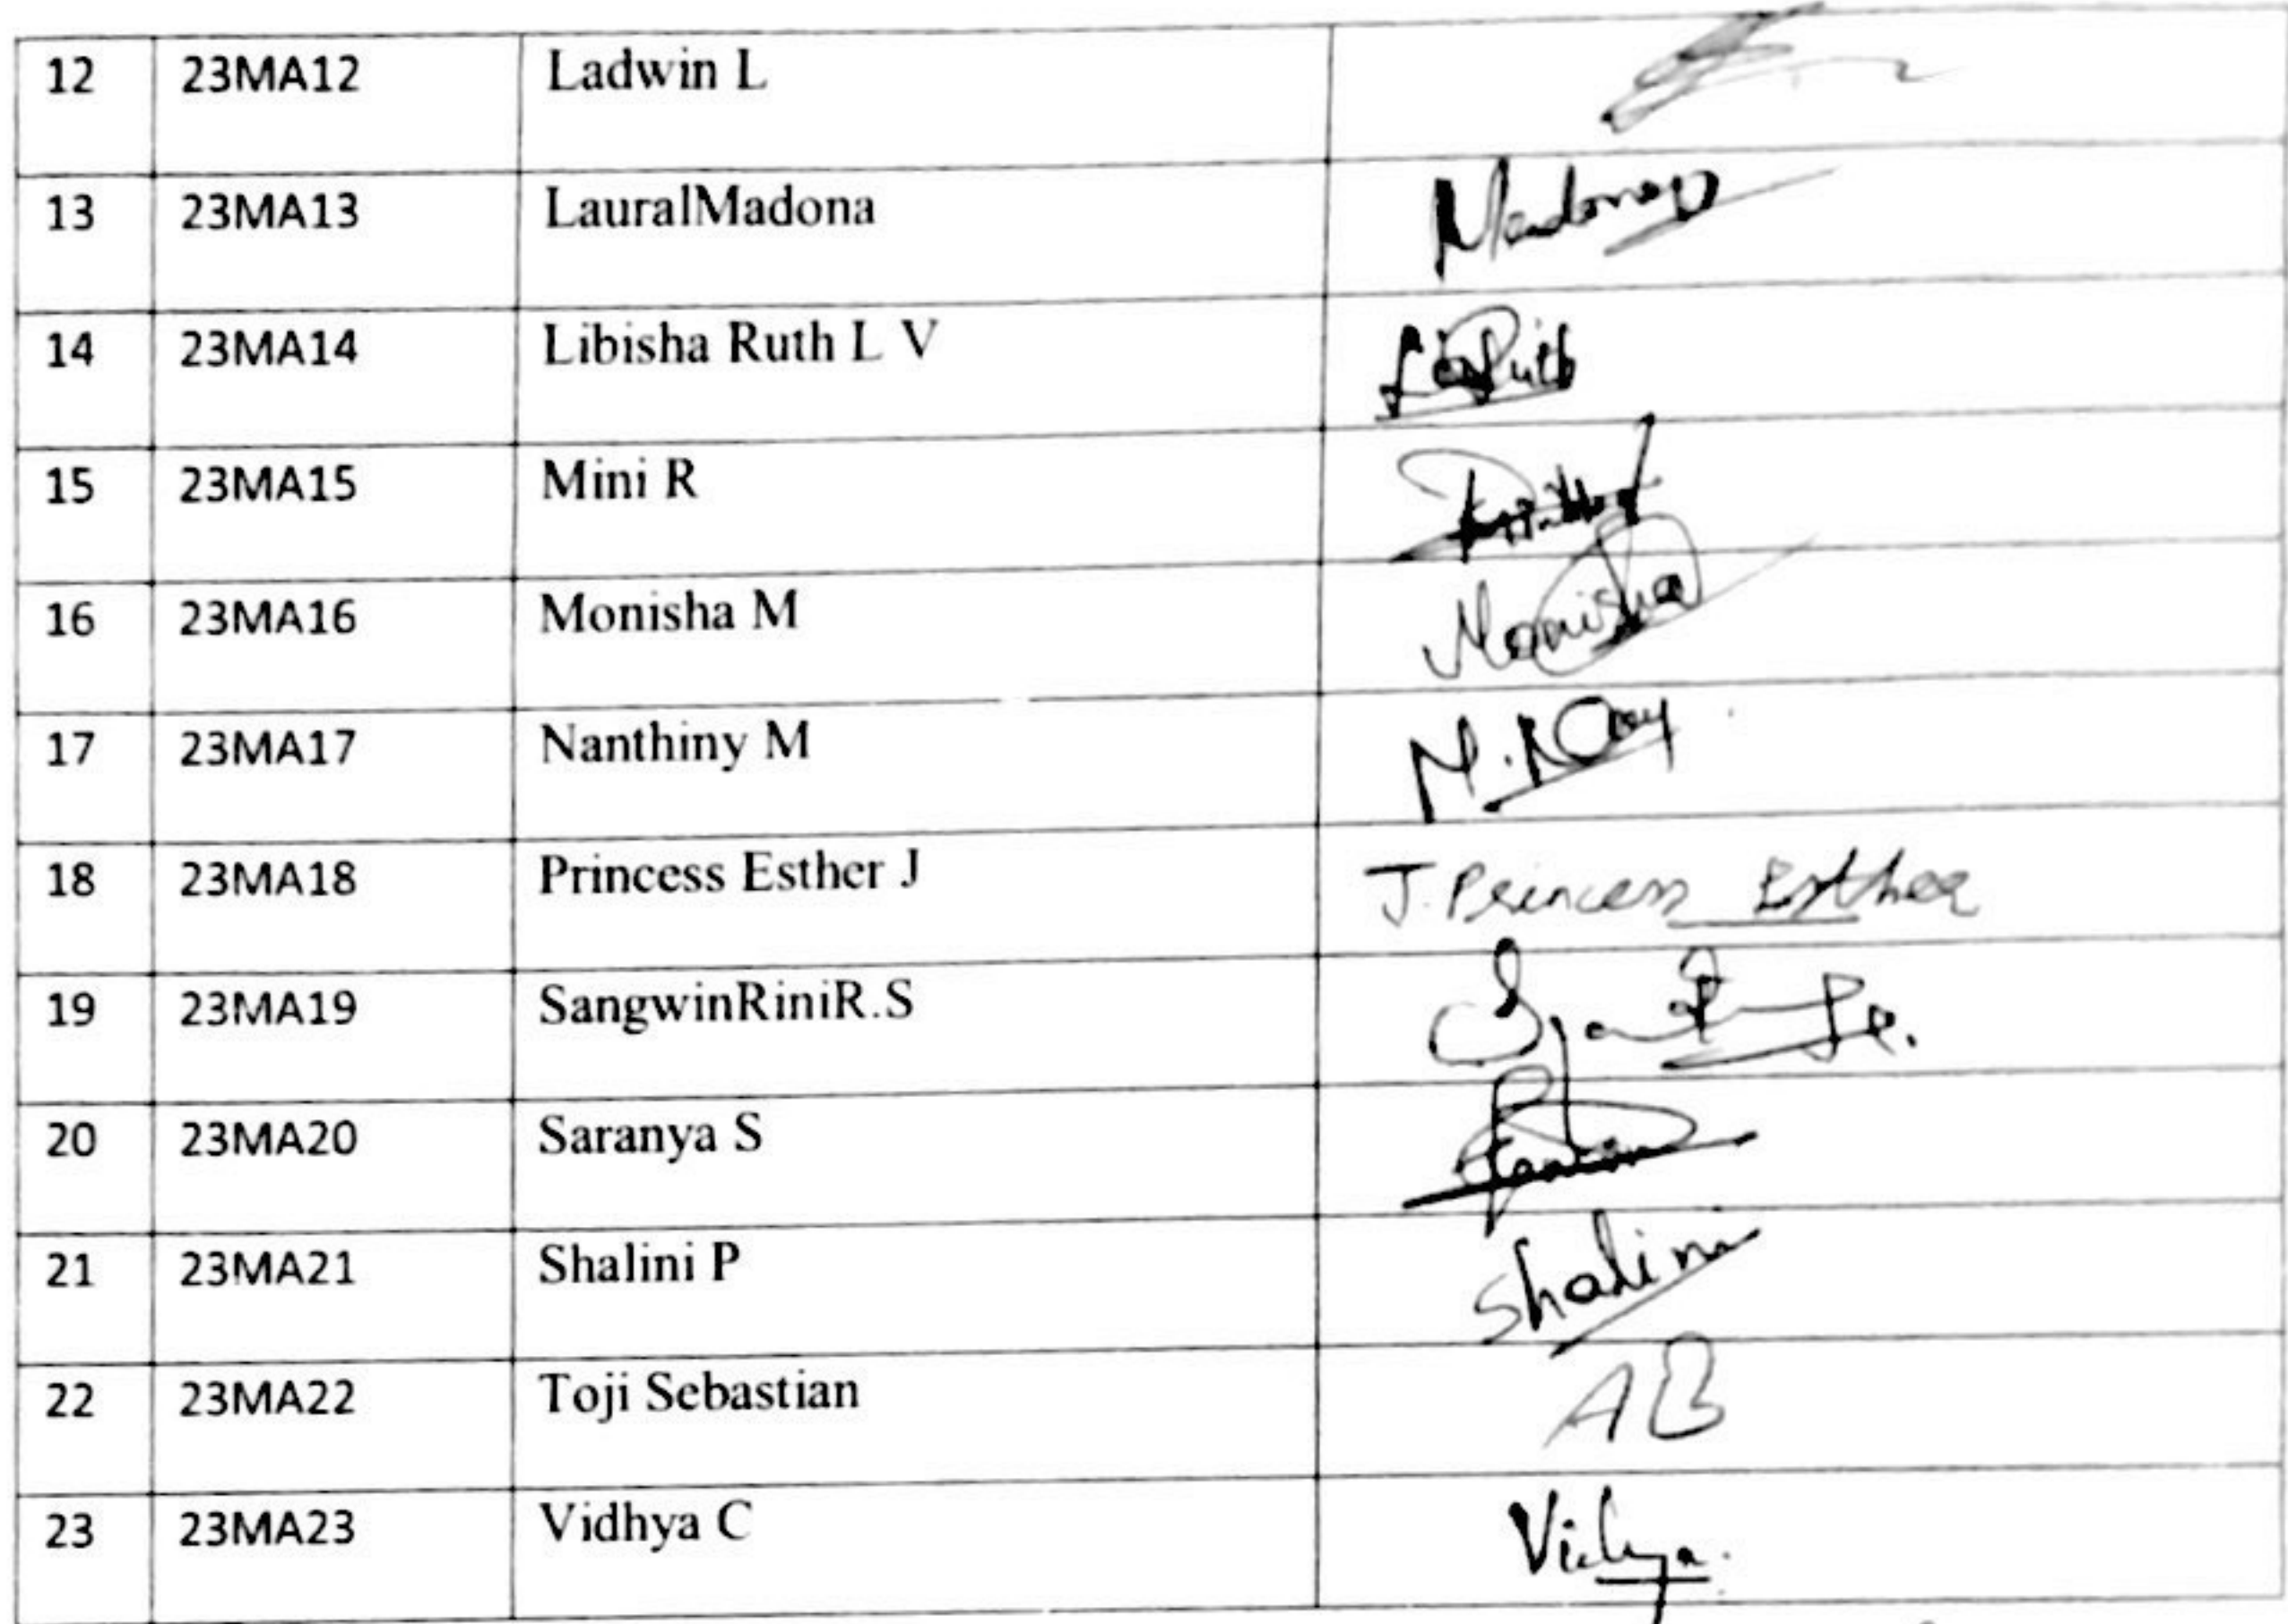 12 23MA12 Ladwin L
13 23MA13 LauralMadona Madona
14 23MA14 Libisha Ruth L V
15 23MA15 Mini R
16 23MA16 Monisha M Monisha
17 23MA17 Nanthiny M
18 23MA18 Princess Esther J J. Princess Esther
19 23MA19 SangwinRiniR.S
20 23MA20 Saranya S
21 23MA21 Shalini P Shalini
22 23MA22 Toji Sebastian AB
23 23MA23 Vidhya C Vidhya